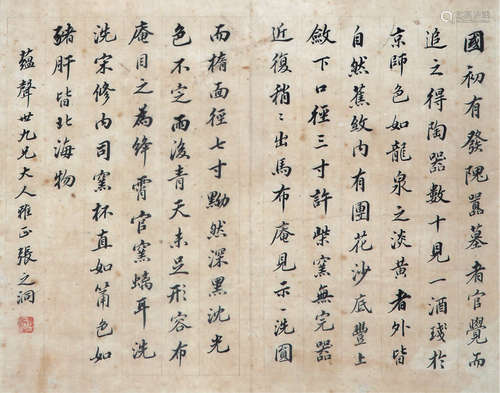 國初有發隗囂墓者官覺而
追之得陶器數十見一酒琖於
京師色如龍泉之淡黃者外皆
自然蕉紋內有團花沙底豐上
斂下口徑三寸許柴窯無完器
近復稍稍出馬布庵見示一洗圓
而橢面徑七寸黝然深黑沈光
色不定雨後青天未足形容布
庵目之為絳霄官窯螭耳洗
洗宋修內司窯杯直如筩色如
豬肝皆北海物
蘊聲世九兄大人雅正張之洞